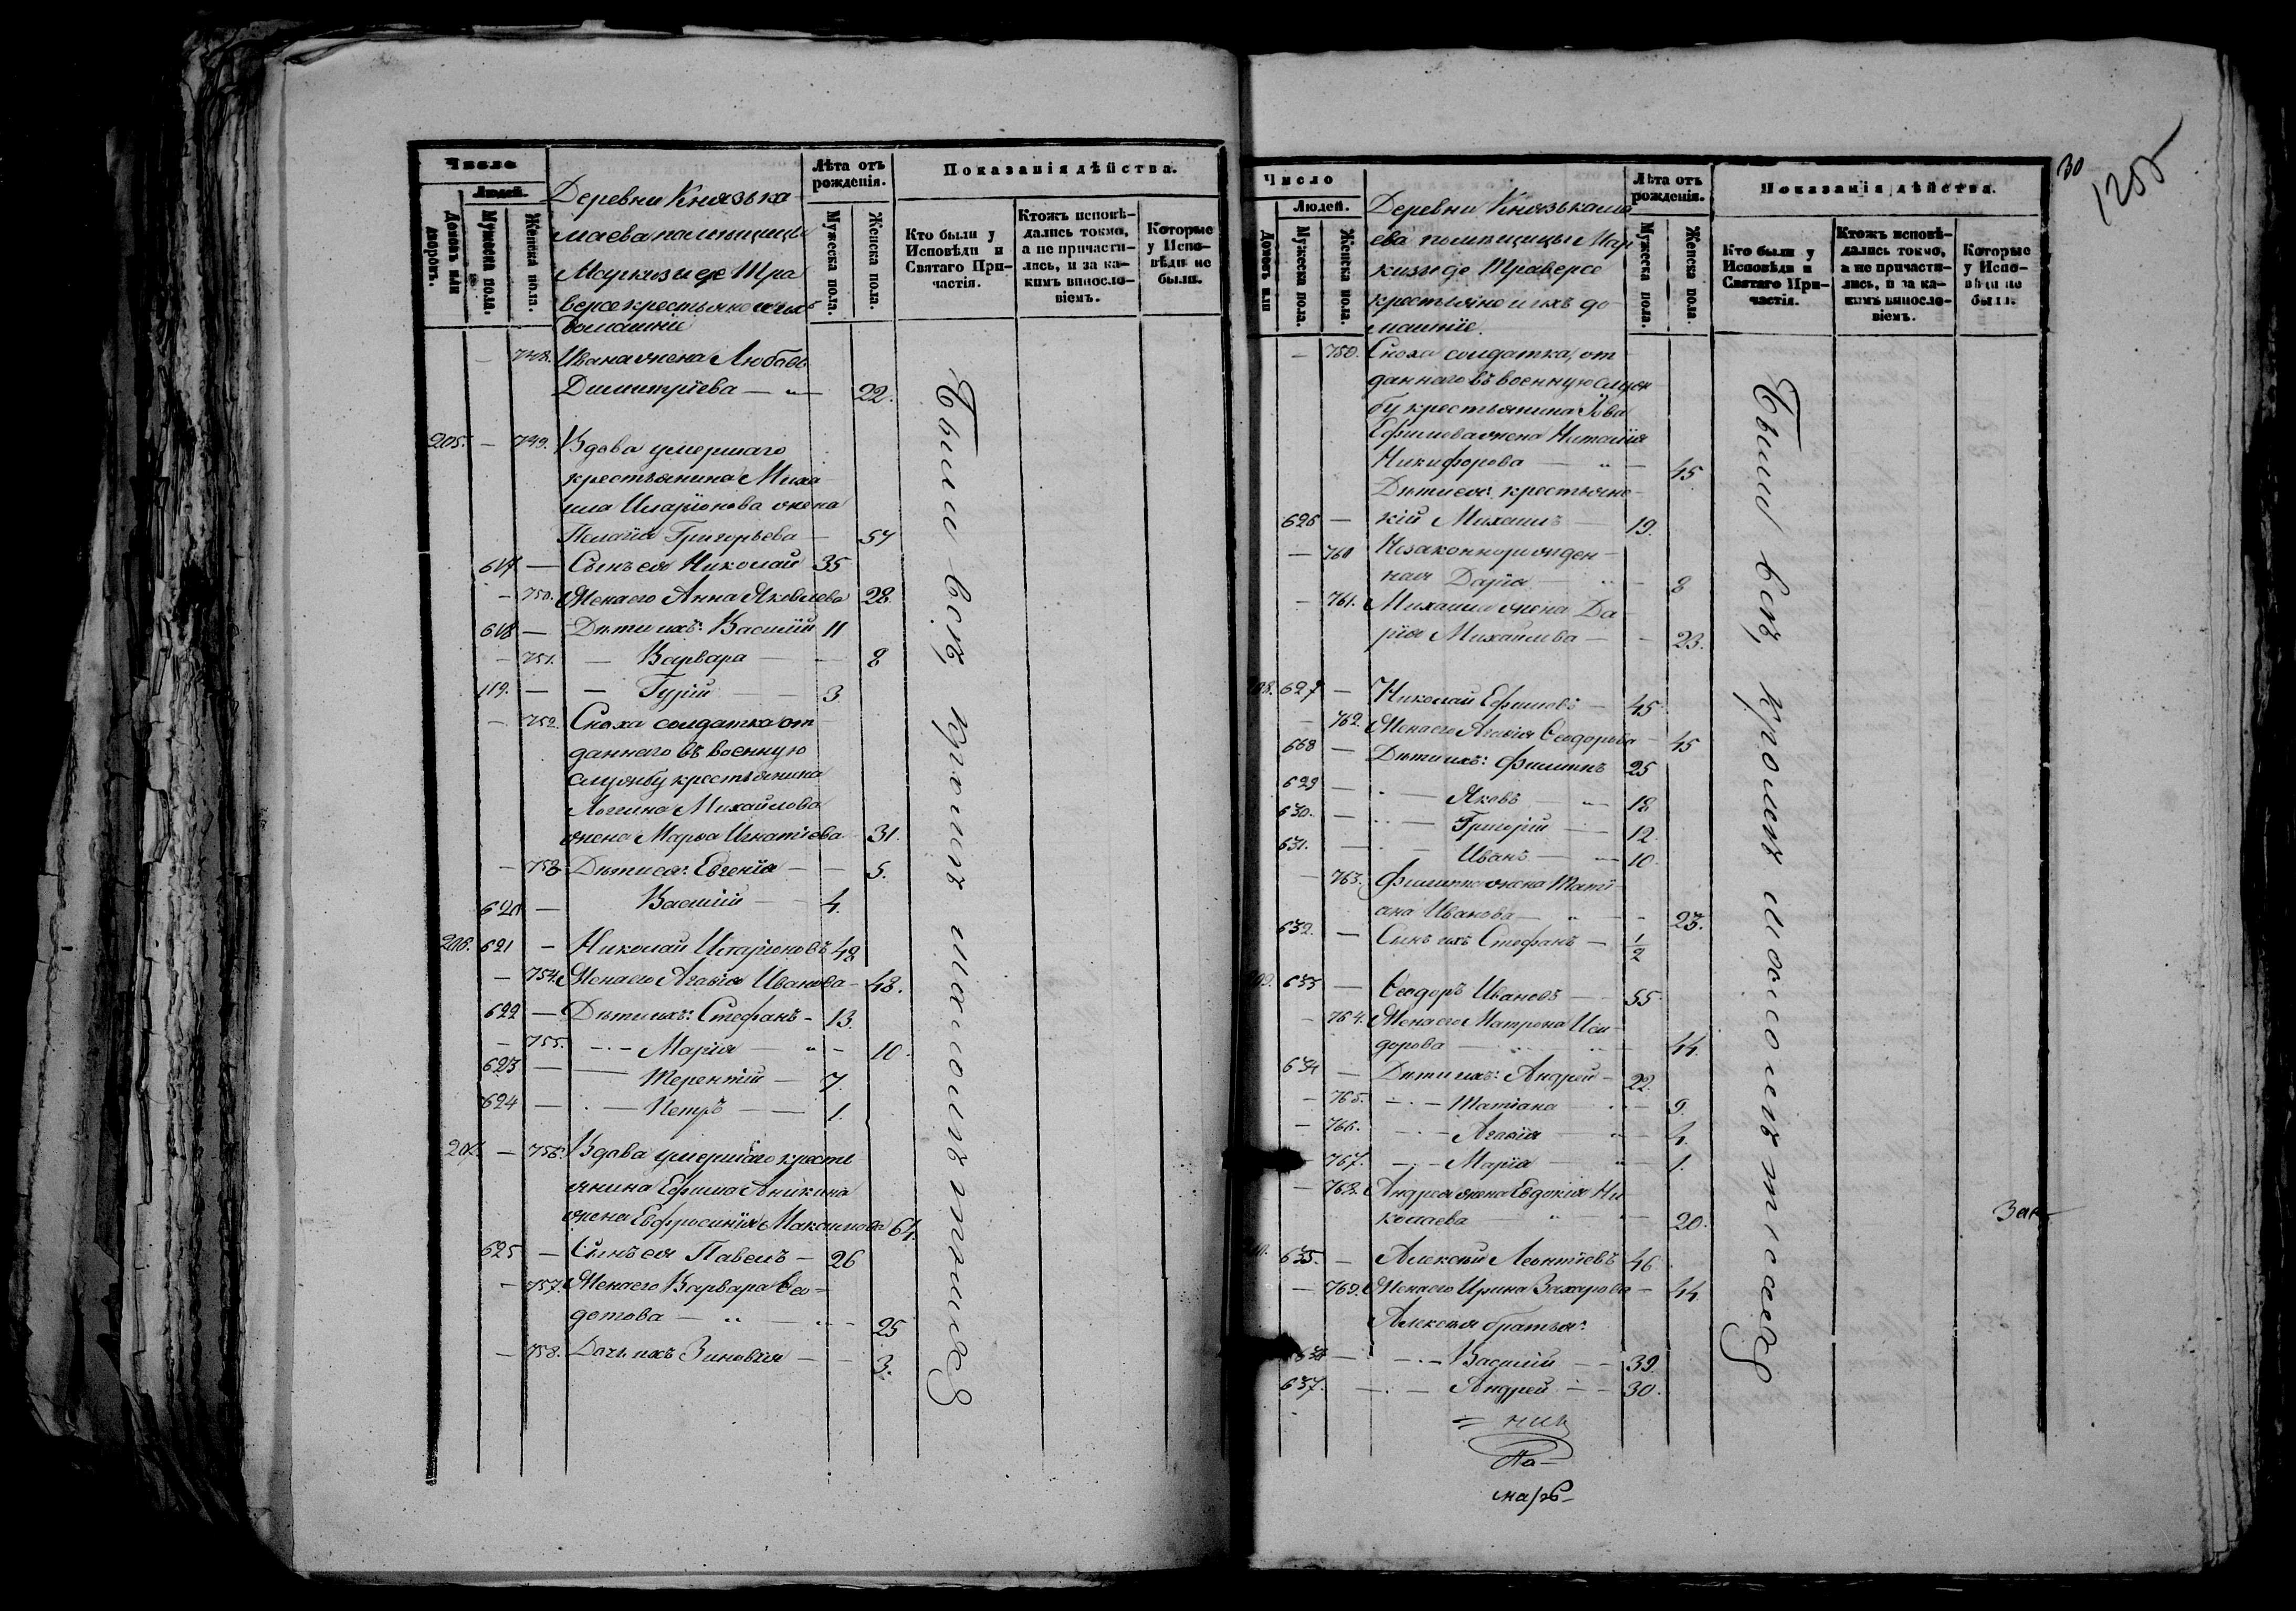 Число
Людей.
Домовъ или дворовъ.
Мужеска пола.
Женска пола.
Деревни Князька
маева помѣщицы
Маркизы де Тра
версе крестьяне и ихъ
домашніе
Лѣта отъ рожденія.
Мужеска пола.
Женска пола.
Показанія дѣйства.
Кто были у Исповѣди и Святаго Причастія.
Ктожъ исповѣдались токмо, а не причастились, и за какимъ винословіемъ.
Которые у Исповѣди не были.
— 748. Ивана жена Любовь
Димитріева — 22.
205. — 749. Вдова умершаго
крестьянина Миха
ила Иларіонова жена
Пелагія Григорьева — 54
617 — Сынъ ея Николай 35
— 750. Жена его Анна Яковлева 28.
618 — Дѣти ихъ: Василій 11
— 751. — Варвара — 8
619. — — Гурій — 3.
— 752. Сноха солдатка от
даннаго въ военную
службу крестьянина
Логгина Михайлова
жена Марѳа Игнатіева 31.
— 753 Дѣти ея: Евгенія — 5.
620 — Василій — 4.
206. 621 — Николай Иларіоновъ 48
— 754. Жена его Агаѳія Иванова — 48.
622 — Дѣти ихъ: Стефанъ — 13.
— 755. — Марія — 10.
623 — Терентій — 7.
624 — Петръ — 1.
207. — 756. Вдова умершаго кресть
янина Ефима Аникина
жена Евфросинія Максимова 64.
625 — Сынъ ея Павелъ — 26
— 757. Жена его Варвара Ѳе
дотова — 25
— 758. Дочь ихъ Зиновія — 3.
Были всѣ, кромѣ малолѣтнихъ
30
1205
Число
Людей.
Домовъ или
Мужеска пола.
Женска пола.
Деревни Князькама
ева помѣщицы Мар
кизы де Траверсе
крестьяне и ихъ до
машніе.
Лѣта отъ рожденія.
Мужеска пола.
Женска пола.
Показанія дѣйства.
Кто были у Исповѣди и Святаго Причастія.
Ктожъ исповѣдались токмо, а не причастились, и за какимъ винословіемъ.
Которые у Исповѣди не были.
— 750. Сноха солдатка, от
даннаго въ военную служ
бу крестьянина
Ефимова жена Наталія
Никифорова — 45
Дѣти ея: крестьянс
626 — кій Михаилъ — 19.
— 760 Незаконнорожден
ная Дарія — 8
— 761. Михаила жена Да
рія Михайлова — 23.
208. 627 — Николай Ефимовъ — 45
— 762. Жена его Агаѳія Ѳеодорова — 45
628 — Дѣти ихъ: Филиппъ 25
629 — Яковъ — 18
630. — Григорій — 12.
631. — Иванъ — 10.
— 763. Филиппа жена Таті
ана Иванова — 23.
632. — Сынъ ихъ Стефанъ — 1/2
209. 633 — Ѳеодоръ Ивановъ — 55
— 764. Жена его Матрона Иси
дорова — 44.
634 — Дѣти ихъ: Андрей — 22.
— 765. — Татіана — 9.
— 766. — Агаѳія — 4.
— 767. — Марія — 1.
— 768. Андрея жена Евдокія Ни
колаева — 20.
635. — Алексѣй Леонтіевъ 46
— 769. Жена его Ирина Захарова — 44.
Алексѣя братья:
636 — Василій — 39.
637. — Андрей — 30.
Были всѣ, кромѣ малолѣтнихъ
По-
марь